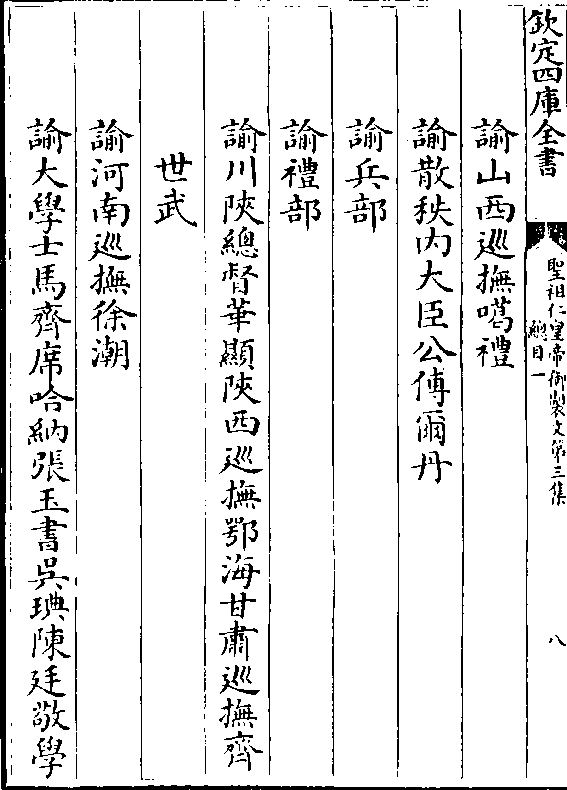 欽定四庫全書
聖祖仁皇帝御製文第三集
總目一
八
諭山西巡撫噶禮
諭散秩內大臣公傅爾丹
諭兵部
諭禮部
諭川陝總督華顯陝西巡撫鄂海甘肅巡撫齊
世武
諭河南巡撫徐潮
諭大學士馬齊席哈納張玉書吳琠陳廷敬學